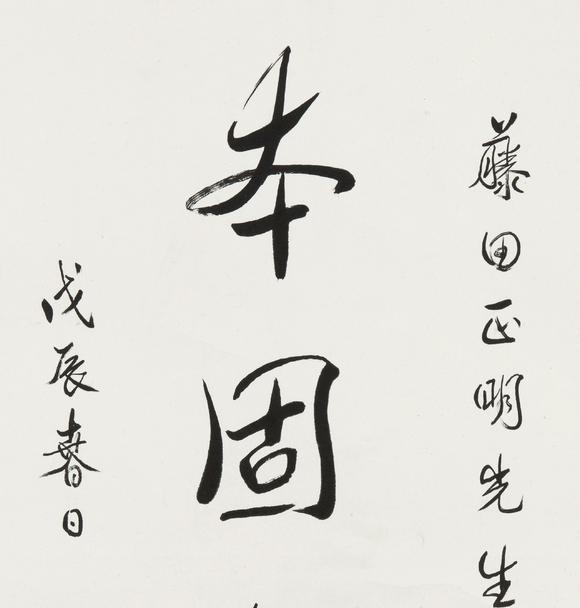 藤田正明先生
本固
戊辰春日